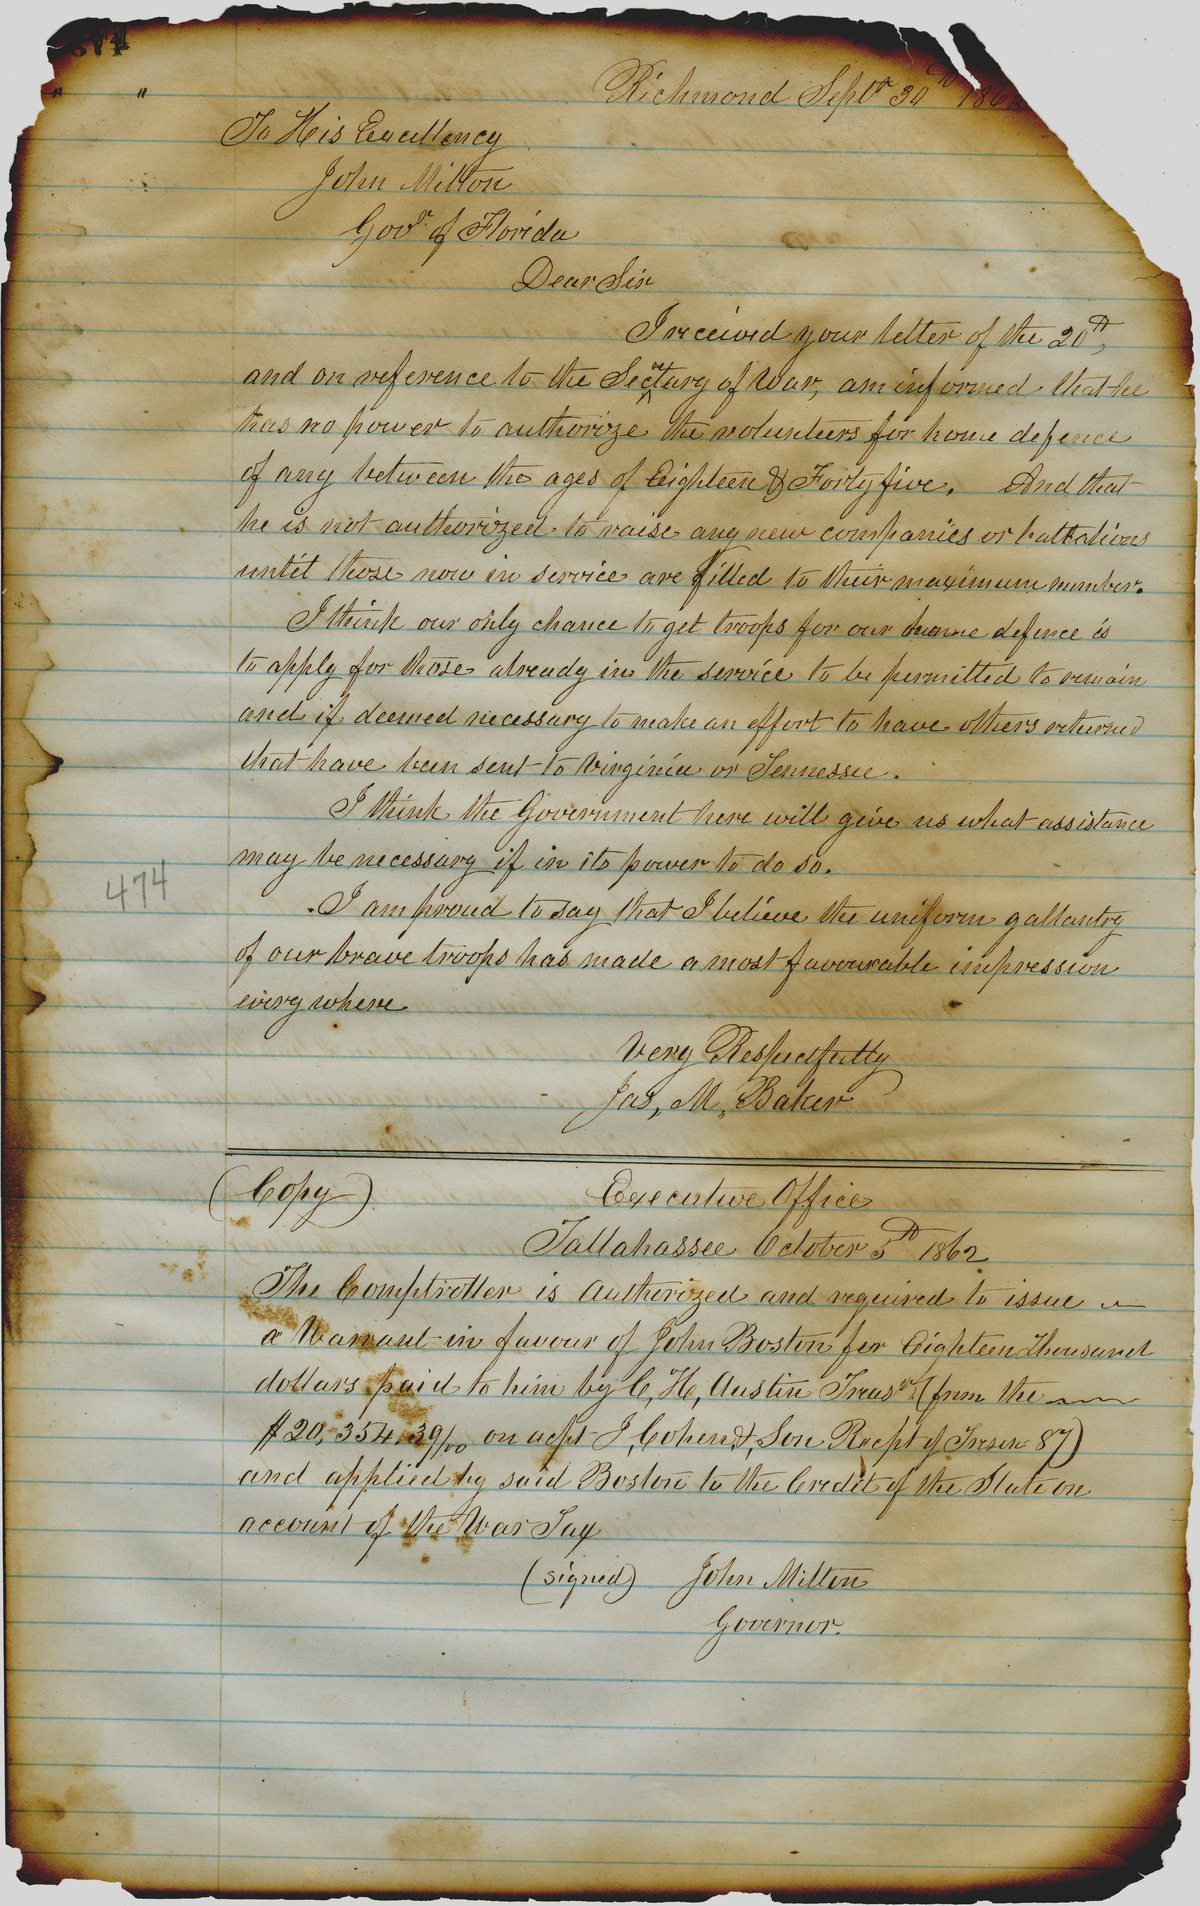 374
" "
Richmond Sept 30th 1862
To His Excellency
John Milton
Govr of Florida
Dear Sir
I received your letter of the 20th,
and on reference to the Secretary of War, am informed that he
has no power to authorize the volunteers for home defence
of any between the ages of Eighteen & Forty five. And that
he is not authorized to raise any new companies or battalions
until those now in service are filled to their maximum number.
I think our only chance to get troops for our home defence is
to apply for those already in the service to be permitted to remain
and if deemed necessary to make an effort to have others returned
that have been sent to Virginia or Tennessee.
I think the Government here will give us what assistance
may be necessary if in its power to do so.
474
I am proud to say that I believe the uniform gallantry
of our brave troops has made a most favourable impression
every where
Very Respectfully
Jas, M, Baker
(Copy) Executive Office
Tallahassee October 5th 1862
The Comptroller is authorized and required to issue
a Warrant in favour of John Boston for Eighteen Thousand
dollars paid to him by C, H, Austin Treasr (from the
$20,354.39/00 on acpt I, Cohen & Son Recpt of 87)
and applied by said Boston to the Credit of the State on
account of the War Tax
(signed) John Milton
Governor.